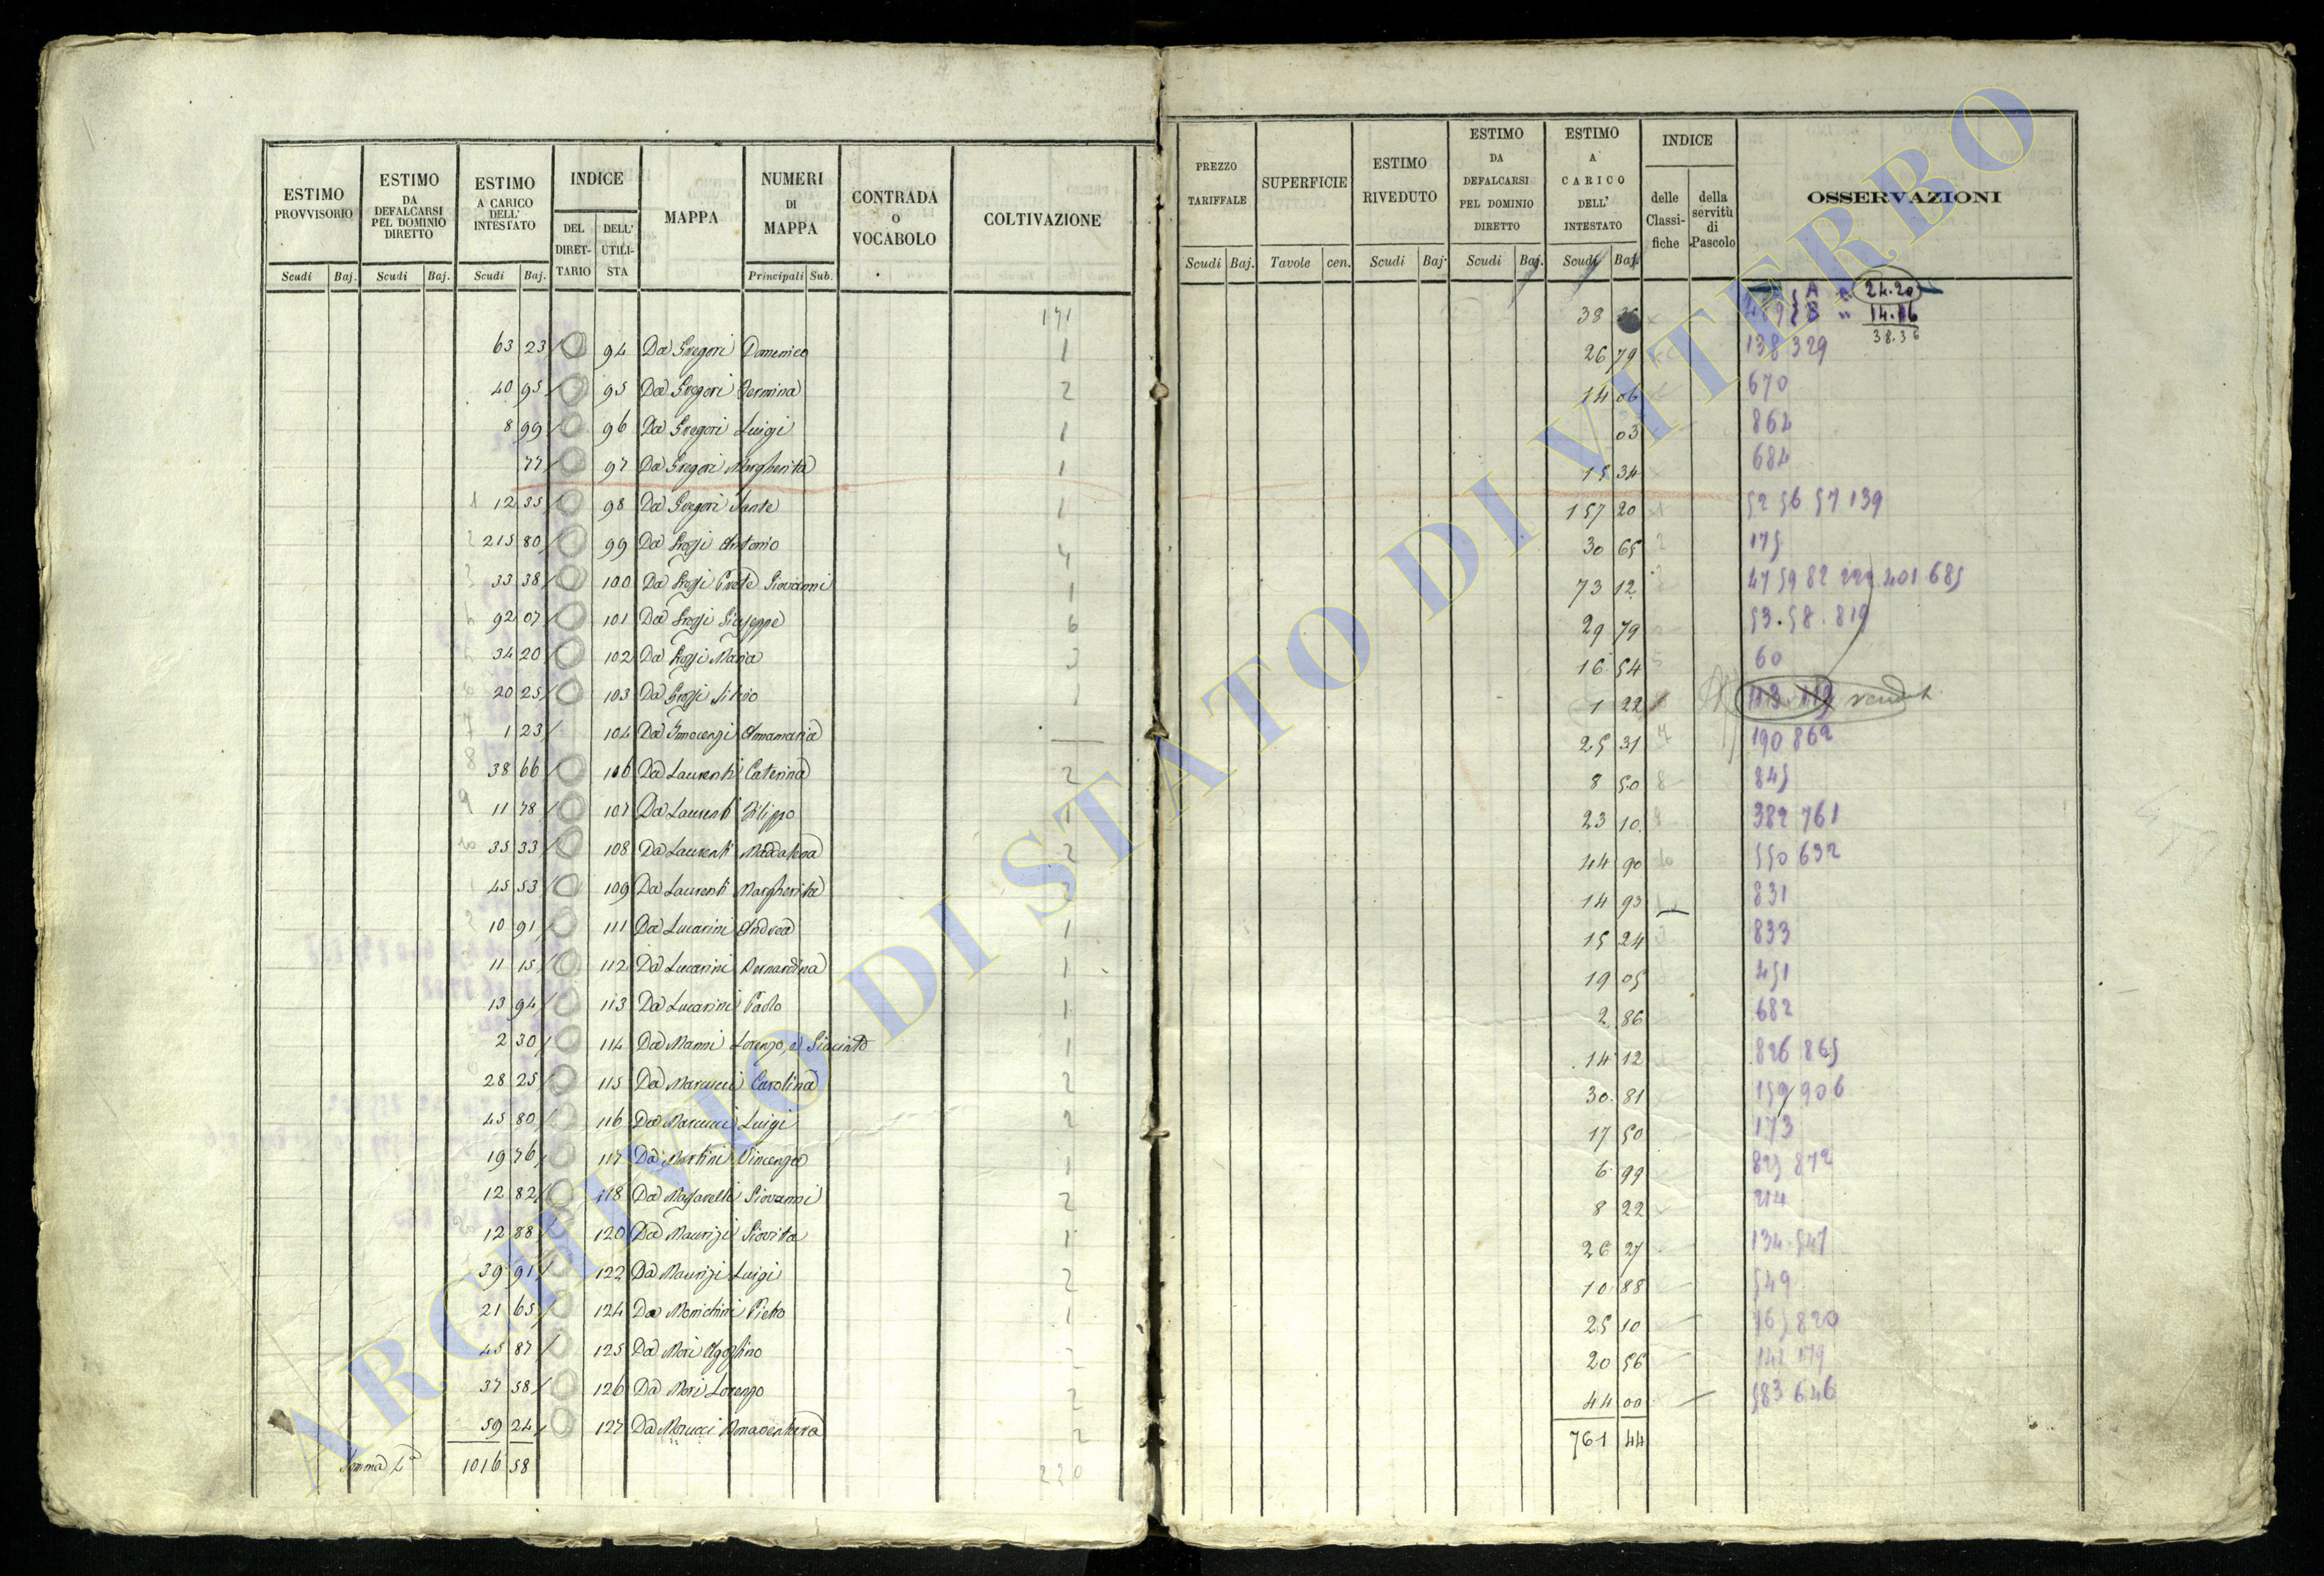 ESTIMO PROVVISORIO
ESTIMO DA DEFALCARSI PEL DOMINIO DIRETTO
ESTIMO A CARICO DELL' INTESTATO
INDICE
DEL DIRET-TARIO
DELL' UTILI-STA
MAPPA
NUMERI DI MAPPA
CONTRADA O VOCABOLO
COLTIVAZIONE
Scudi Baj. Scudi Baj. Scudi Baj. Principali Sub.
171
63 23 94 Da Gregori Domenico 1
40 95 95 Da Gregori Erminia 2
8 99 96 Da Gregori Luigi 1
77 97 Da Gregori Margherita 1
1 12 35 98 Da Gregori Sante 1
2 215 80 99 Da Grossi Antonio 4
3 33 38 100 Da Grossi Prete Giovanni 1
92 07 101 Da Grossi Giuseppe 6
34 20 102 Da Grossi Maria 3
6 20 25 103 Da Grossi Silvio 1
7 1 23 104 Da Innocenzi Annamaria
8 38 66 106 Da Laurenti Caterina 2
9 11 78 107 Da Laurenti Filippo 1
10 35 33 108 Da Laurenti Maddalena 2
45 53 109 Da Laurenti Margherita 2
10 91 111 Da Lucarini Andrea 1
11 15 112 Da Lucarini Bernardina 1
13 94 113 Da Lucarini Paolo 1
2 30 114 Da Manni Lorenzo, e Giacinto 1
28 25 115 Da Marcucci Carolina 2
45 80 116 Da Marcucci Luigi 2
19 76 117 Da Martini Vincenza 1
12 82 118 Da Massarelli Giovanni 2
12 88 120 Da Maurizi Giovita 1
39 91 122 Da Maurizi Luigi 2
21 65 124 Da Morichini Pietro 1
45 87 125 Da Mori Agostino
37 58 126 Da Mori Lorenzo 2
59 24 127 Da Morucci Bonaventura 2
Somma La 1016 58 220
PREZZO TARIFFALE
SUPERFICIE
ESTIMO RIVEDUTO
ESTIMO DA DEFALCARSI PEL DOMINIO DIRETTO
ESTIMO A CARICO DELL' INTESTATO
INDICE
delle Classi-fiche
della servitù di Pascolo
OSSERVAZIONI
Scudi Baj. Tavole cen. Scudi Baj. Scudi Baj. Scudi Baj.
A 24.20
38 B " 14.16
38.36
26 79 138 329
14 06 670
03 862
15 34 684
157 20 1 52 56 57 139
30 65 2 175
73 12 3 47 59 82 222 401 685
29 79 53.58.819
16 54 5 60
1 22 113 119
25 31 7 190 862
8 50 8 845
23 10 382 761
44 90 10 550 632
14 93 831
15 24 833
19 05 451
2 86 682
14 12 826 865
30 81 159 906
17 50 173
6 99 825 872
8 22 214
26 27 134 547
10 88 549
25 10 765 820
20 56 142 179
44 00 583 646
761 44
ARCHIVIO DI STATO DI VITERBO